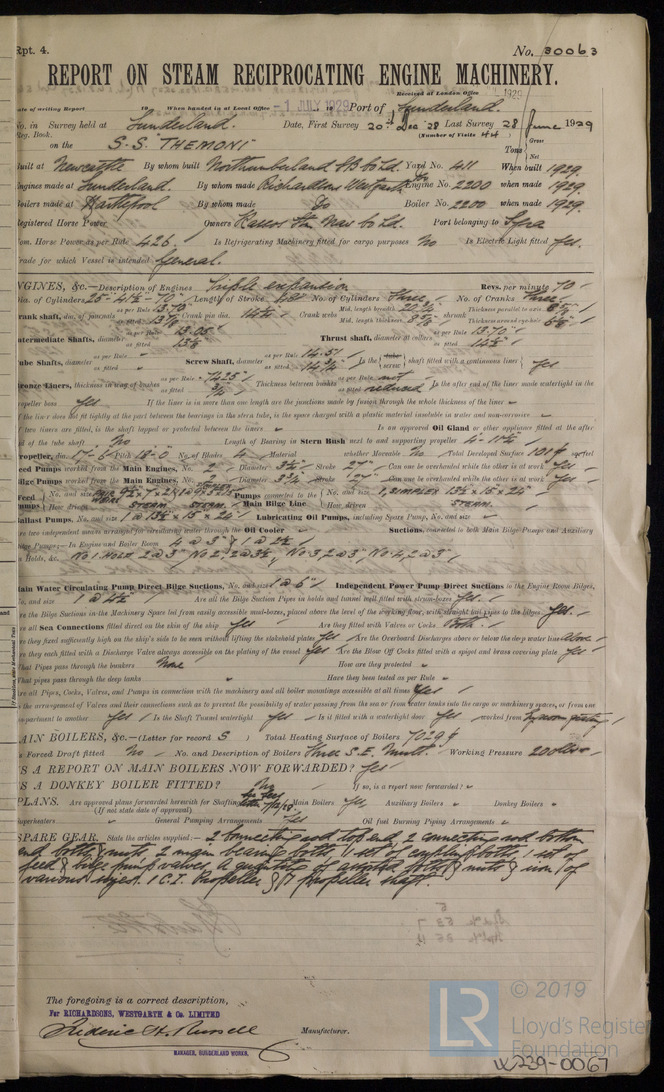 Rpt. 4. No. 30063
REPORT ON STEAM RECIPROCATING ENGINE MACHINERY.
Received at London Office 1929
Date of writing Report 19 When handed in at Local Office -1 JULY 1929 Port of Sunderland.
No. in Survey held at Sunderland. Date, First Survey 20th Dec '28 Last Survey 28 June 1929
Reg. Book. (Number of Visits 44)
on the S.S. "THEMONI" Tons Gross Net
Built at Newcastle By whom built Northumberland SB Co Ld. Yard No. 411 When built 1929.
Engines made at Sunderland. By whom made Richardsons Westgarth Engine No. 2200 when made 1929.
Boilers made at Hartlepool By whom made Do Boiler No. 2200 when made 1929.
Registered Horse Power Owners Kassos Stm Nav Co Ld. Port belonging to Syra
Nom. Horse Power as per Rule 426. Is Refrigerating Machinery fitted for cargo purposes No Is Electric Light fitted Yes.
Trade for which Vessel is intended General.
ENGINES, &c.—Description of Engines Triple expansion Revs. per minute 70
Dia. of Cylinders 25-41½-70 Length of Stroke No. of Cylinders Three No. of Cranks Three
Crank shaft, dia. of journals as per Rule 13.70 as fitted Crank pin dia. 14½ Crank webs Mid. length breadth 20¾ Mid. length thickness shrunk Thickness parallel to axis Thickness around eye-hole
Intermediate Shafts, diameter as per Rule 13.05 as fitted Thrust shaft, diameter at collars as per Rule 13.70 as fitted
Tube Shafts, diameter as per Rule as fitted Screw Shaft, diameter as per Rule 14.51 as fitted 14¾ Is the tube screw shaft fitted with a continuous liner Yes
Bronze Liners, thickness in way of bushes as per Rule .7425 as fitted Thickness between bushes as per Rule not as fitted reduced Is the after end of the liner made watertight in the
propeller boss Yes If the liner is in more than one length are the junctions made by fusion through the whole thickness of the liner
If the liner does not fit tightly at the part between the bearings in the stern tube, is the space charged with a plastic material insoluble in water and non-corrosive
If two liners are fitted, is the shaft lapped or protected between the liners Is an approved Oil Gland or other appliance fitted at the after
end of the tube shaft No Length of Bearing in Stern Bush next to and supporting propeller 4-11½
Propeller, dia. 17-6 Pitch 18-0 No. of Blades 4 Material whether Moveable No Total Developed Surface 101 sq. feet
Feed Pumps worked from the Main Engines, No. 2 Diameter 3¾ Stroke 27 Can one be overhauled while the other is at work Yes
Bilge Pumps worked from the Main Engines, No. Diameter 3¾ Stroke 27 Can one be overhauled while the other is at work Yes
Feed Pumps No. and size How driven STEAM. STEAM. Pumps connected to the Main Bilge Line No. and size 1, SIMPLEX 13½ x 15 x 24 How driven STEAM.
Ballast Pumps, No. and size 1 @ 13½ x 15 x 24 Lubricating Oil Pumps, including Spare Pump, No. and size
Are two independent means arranged for circulating water through the Oil Cooler Suctions, connected to both Main Bilge Pumps and Auxiliary
Bilge Pumps:—In Engine and Boiler Room 4 @ 3 & 1 @ 2½
In Holds, &c. No 1 Hold 2 @ 3 No 2, 2 @ 3½, No 3, 2 @ 3, No 4, 2 @ 3
Main Water Circulating Pump Direct Bilge Suctions, No. and size 1 @ 6 Independent Power Pump Direct Suctions to the Engine Room Bilges,
No. and size 1 @ 4½ Are all the Bilge Suction Pipes in holds and tunnel well fitted with strum-boxes Yes.
Are the Bilge Suctions in the Machinery Space led from easily accessible mud-boxes, placed above the level of the working floor, with straight tail pipes to the bilges Yes.
Are all Sea Connections fitted direct on the skin of the ship Yes Are they fitted with Valves or Cocks Both.
Are they fixed sufficiently high on the ship's side to be seen without lifting the stokehold plates Yes Are the Overboard Discharges above or below the deep water line above
Are they each fitted with a Discharge Valve always accessible on the plating of the vessel Yes Are the Blow Off Cocks fitted with a spigot and brass covering plate Yes
What Pipes pass through the bunkers None How are they protected
What pipes pass through the deep tanks Have they been tested as per Rule
Are all Pipes, Cocks, Valves, and Pumps in connection with the machinery and all boiler mountings accessible at all times Yes
Is the arrangement of Valves and their connections such as to prevent the possibility of water passing from the sea or from water tanks into the cargo or machinery spaces, or from one
compartment to another Yes Is the Shaft Tunnel watertight Yes Is it fitted with a watertight door Yes worked from
MAIN BOILERS, &c.—(Letter for record S) Total Heating Surface of Boilers 7029
Is Forced Draft fitted No No. and Description of Boilers Three S.E. Mult. Working Pressure 200 lbs
IS A REPORT ON MAIN BOILERS NOW FORWARDED? Yes
IS A DONKEY BOILER FITTED? No If so, is a report now forwarded?
PLANS. Are approved plans forwarded herewith for Shafting Main Boilers Yes Auxiliary Boilers Donkey Boilers
(If not state date of approval)
Superheaters General Pumping Arrangements Yes Oil fuel Burning Piping Arrangements
SPARE GEAR. State the articles supplied:— 2 connecting rod top end, 2 connecting rod bottom
end bolts & nuts, 2 main bearing bolts, 1 set of coupling bolts, 1 set of
feed & bilge pump valves, a quantity of assorted bolts & nuts & iron of
various sizes. 1 C.I. Propeller & propeller shaft.
The foregoing is a correct description,
For RICHARDSONS, WESTGARTH & Co. LIMITED
Frederic H. Russell Manufacturer.
MANAGER, SUNDERLAND WORKS.
© 2019
LR Lloyd's Register
Foundation
W239-0067